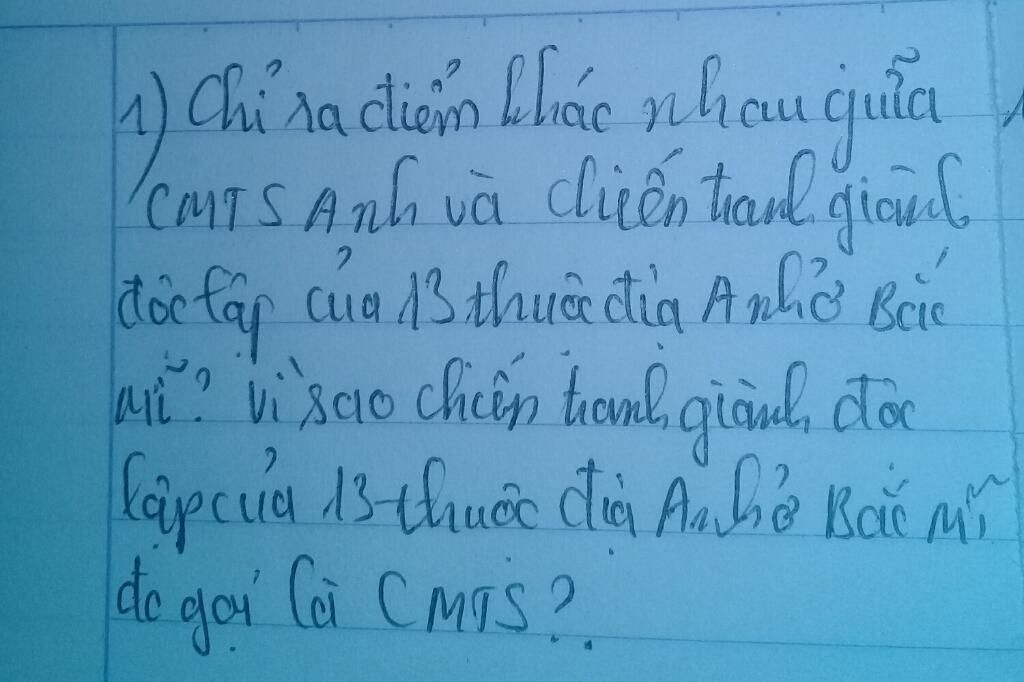 1) Chỉ ra điểm khác nhau giữa
CMTS Anh và chiến tranh giành
độc lập của 13 thuộc địa Anh ở Bắc
Mĩ? Vì sao chiến tranh giành độc
lập của 13 thuộc địa Anh ở Bắc Mĩ
đc gọi là CMTS?